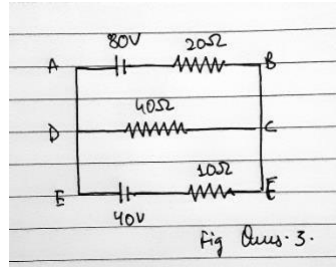 80V 20Ω
A B
40Ω
D C
10Ω
E E
40V
Fig Ques. 3.